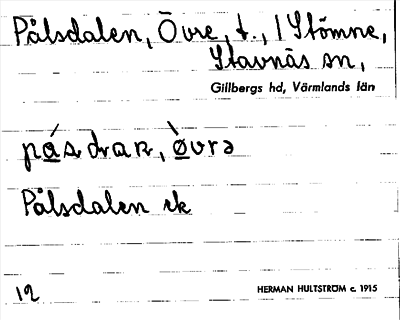 Pålsdalen, Övre, t., / Stömne,
Stavnäs sn,
Gillbergs hd, Värmlands län
Pålsdalen ek
12
HERMAN HULTSTRÖM c. 1915